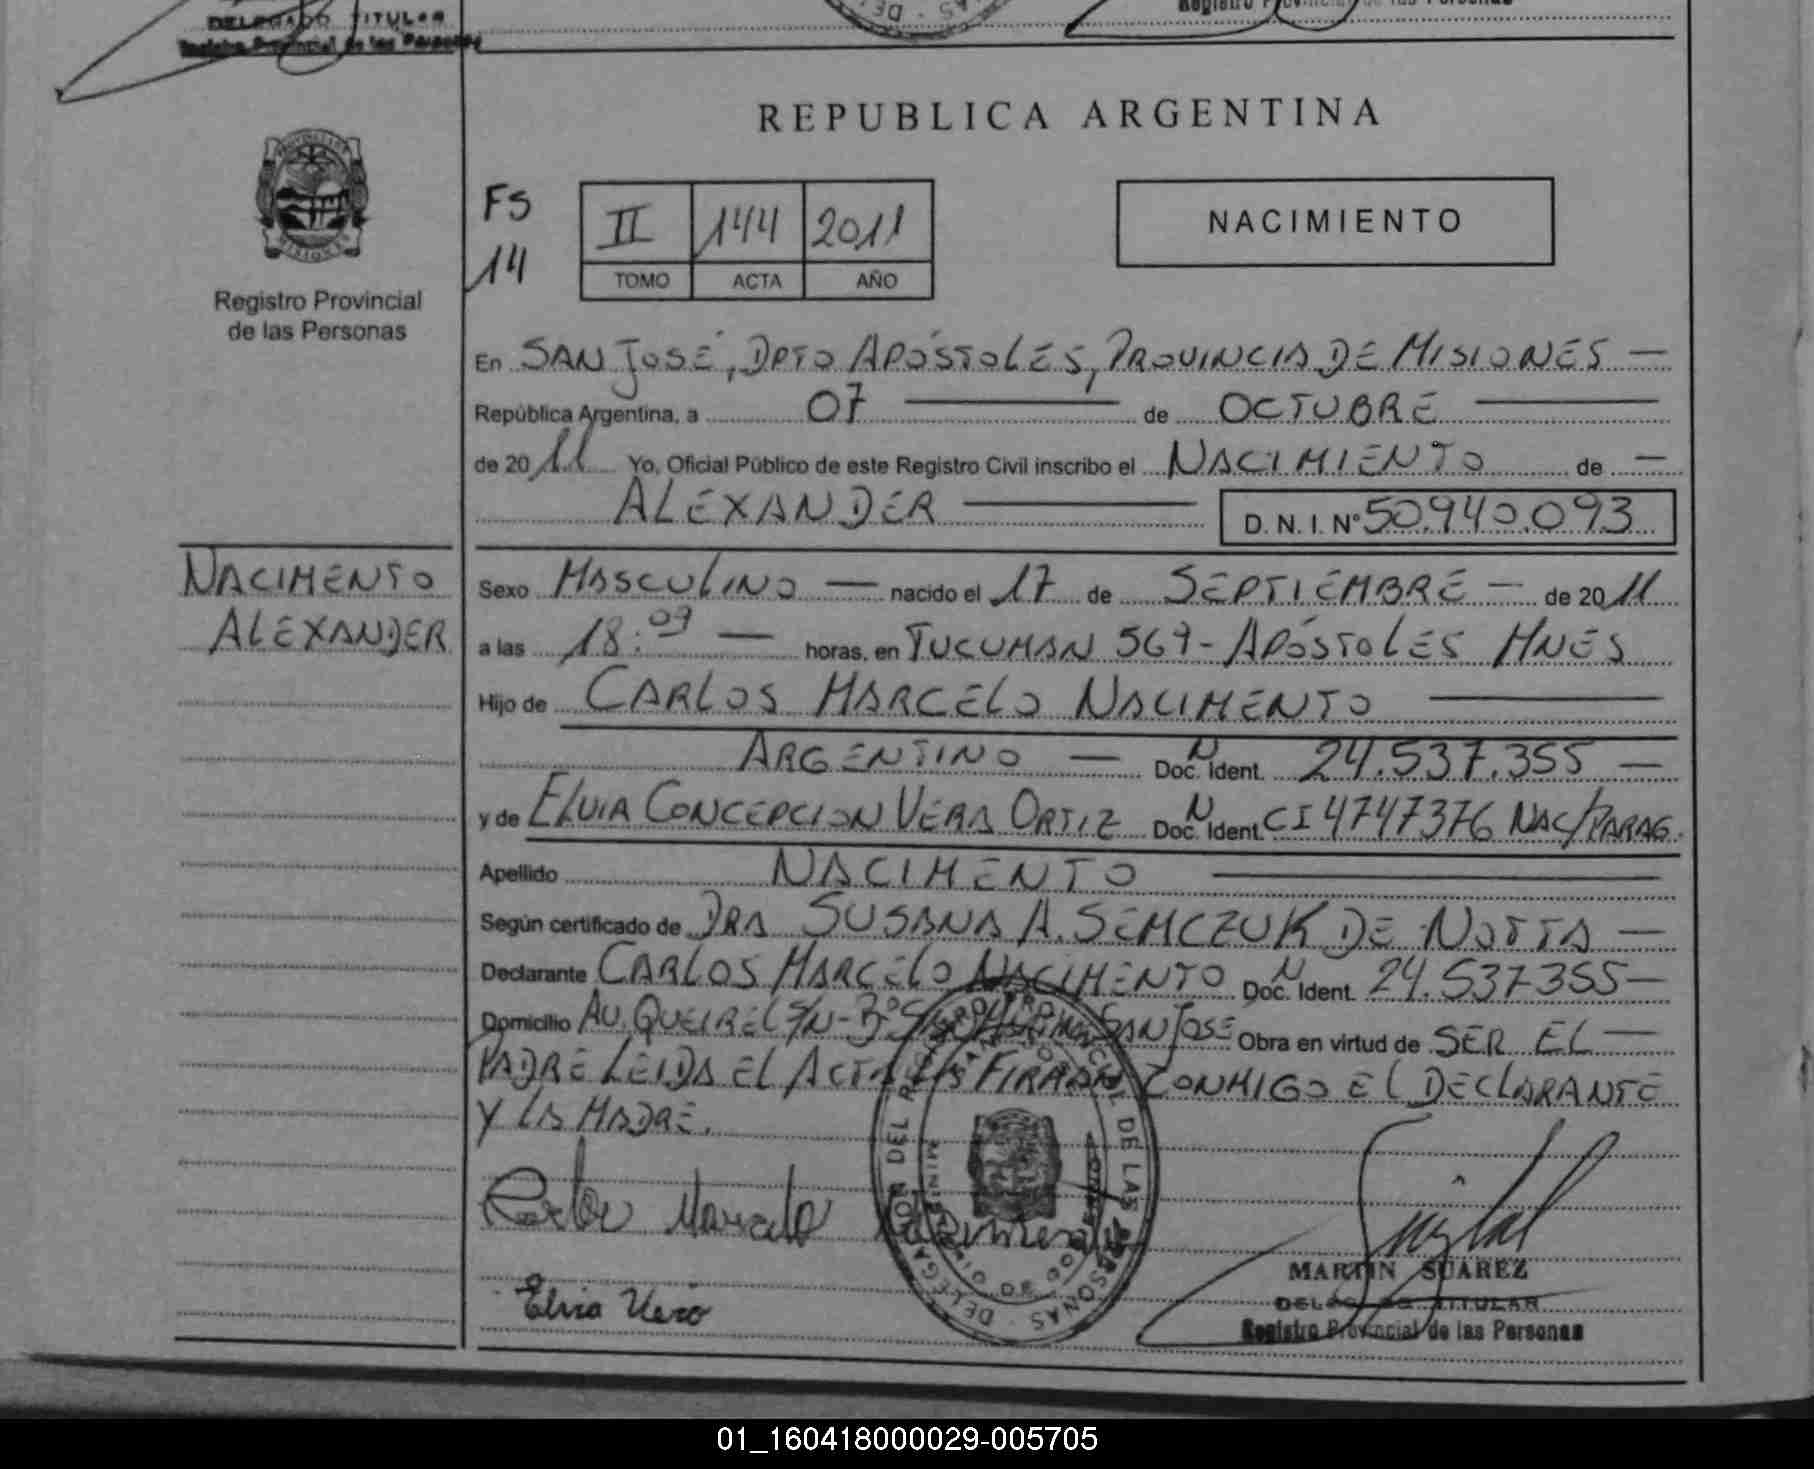 DELEGADO TITULAR
Registro Provincial de las Personas
Registro Provincial de las Personas
REPUBLICA ARGENTINA
Registro Provincial
de las Personas
FS
14
II 144 2011
TOMO ACTA AÑO
NACIMIENTO
En SAN JOSÉ, DPTO APÓSTOLES, PROVINCIA DE MISIONES —
República Argentina, a 07 — de OCTUBRE —
de 2011 Yo, Oficial Público de este Registro Civil inscribo el NACIMIENTO de —
ALEXANDER — D. N. I. Nº 50.940.093
NACIMENTO
ALEXANDER
Sexo MASCULINO — nacido el 17 de SEPTIEMBRE — de 2011
a las 18:09 — horas, en TUCUMAN 567 - APÓSTOLES MNES
Hijo de CARLOS MARCELO NACIMENTO —
ARGENTINO — Doc. Ident. N 24.537.355 —
y de ELVIA CONCEPCION VERA ORTIZ Doc. Ident. N CI 4747376 NAC/PARAG.
Apellido NACIMENTO —
Según certificado de DRA SUSANA A. SEMCZUK DE NOTTA —
Declarante CARLOS MARCELO NACIMENTO Doc. Ident. N 24.537355 —
Domicilio AV. QUEIREL S/N - Bº SAN JOSE Obra en virtud de SER EL —
PADRE LEIDA EL ACTA LA FIRMAN CONMIGO EL DECLARANTE
Y LA MADRE.
Marcelo Nacimento
Elvia Vera
DELEGACION DEL REGISTRO PROVINCIAL DE LAS PERSONAS
MARTIN SUAREZ
DELEGADO TITULAR
Registro Provincial de las Personas
01_160418000029-005705